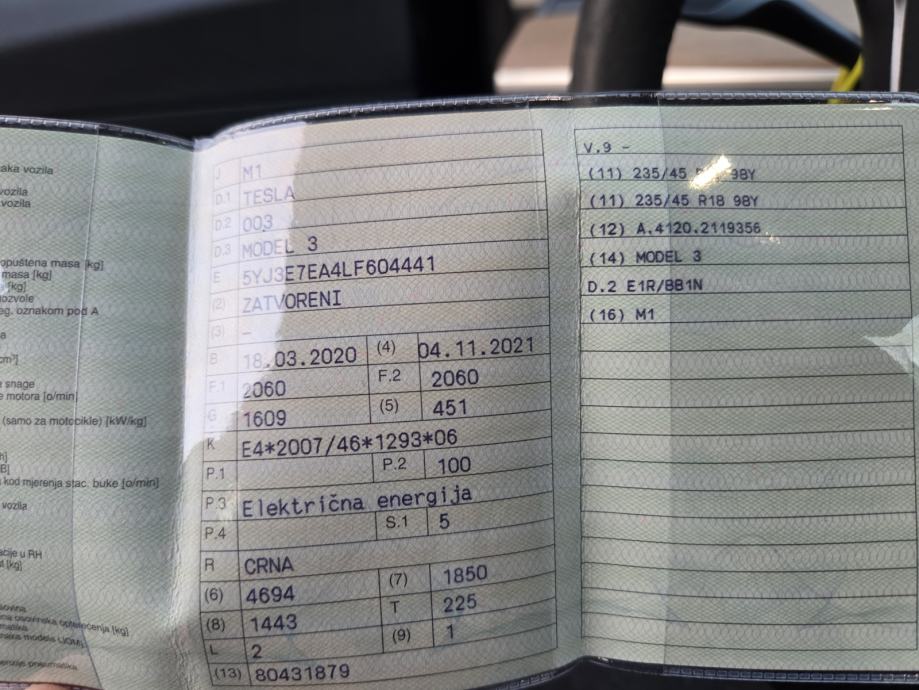 aka vozila
vozila
vozila
opuštena masa [kg]
masa [kg]
[kg]
ozvole
eg. oznakom pod A
a
cm³]
snage
e motora [o/min]
(samo za motocikle) [kW/kg]
h]
B]
kod mjerenja stac. buke [o/min]
vozila
acije u RH
t [kg]
J M1
D.1 TESLA
D.2 003
D.3 MODEL 3
E 5YJ3E7EA4LF604441
(2) ZATVORENI
(3) -
B 18.03.2020 (4) 04.11.2021
F.1 2060 F.2 2060
G 1609 (5) 451
K E4*2007/46*1293*06
P.1 P.2 100
P.3 Električna energija
P.4 S.1 5
R CRNA
(6) 4694 (7) 1850
(8) 1443 T 225
L 2 (9) 1
(13) 80431879
V.9 -
(11) 235/45 98Y
(11) 235/45 R18 98Y
(12) A.4120.2119356
(14) MODEL 3
D.2 E1R/BB1N
(16) M1